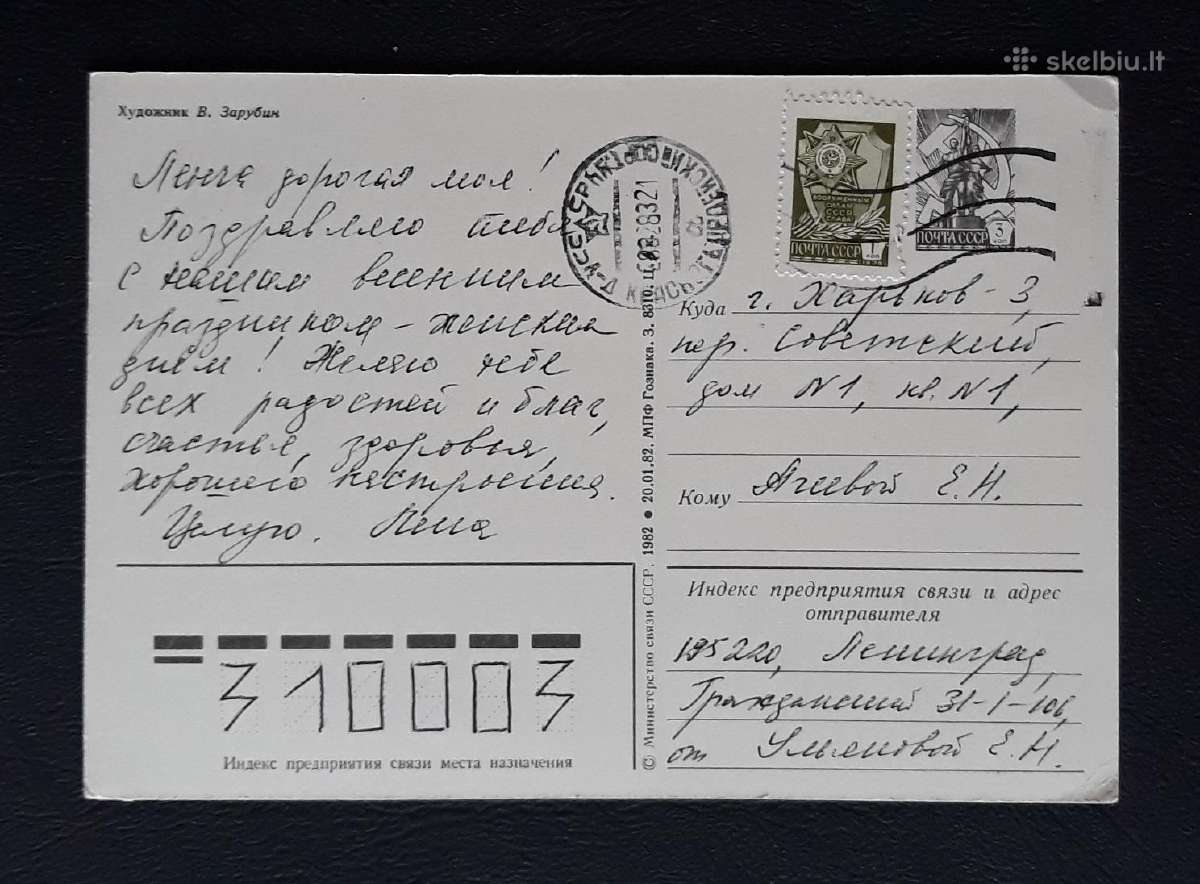 skelbiu.lt
Художник В. Зарубин
Ленча дорогая моя!
Поздравляю тебя
с нашим весенним
праздником - женским
днём! Желаю тебе
всех радостей и благ,
счастья, здоровья,
хорошего настроения.
Целую. Лена
ВООРУЖЕННЫМ
СИЛАМ
СССР
СЛАВА
ПОЧТА СССР
ПОЧТА СССР 3 коп
Куда г. Харьков-3,
пер. Советский,
дом N1, кв. N1,
Кому Агеевой Е.Н.
Индекс предприятия связи и адрес
отправителя
195220, Ленинград,
Гражданский 31-1-
от Ульяновой Е.Н.
© Министерство связи СССР. 1982 ● 20.01.82. МПФ Гознака. З. 8310. Ц.
310003
Индекс предприятия связи места назначения